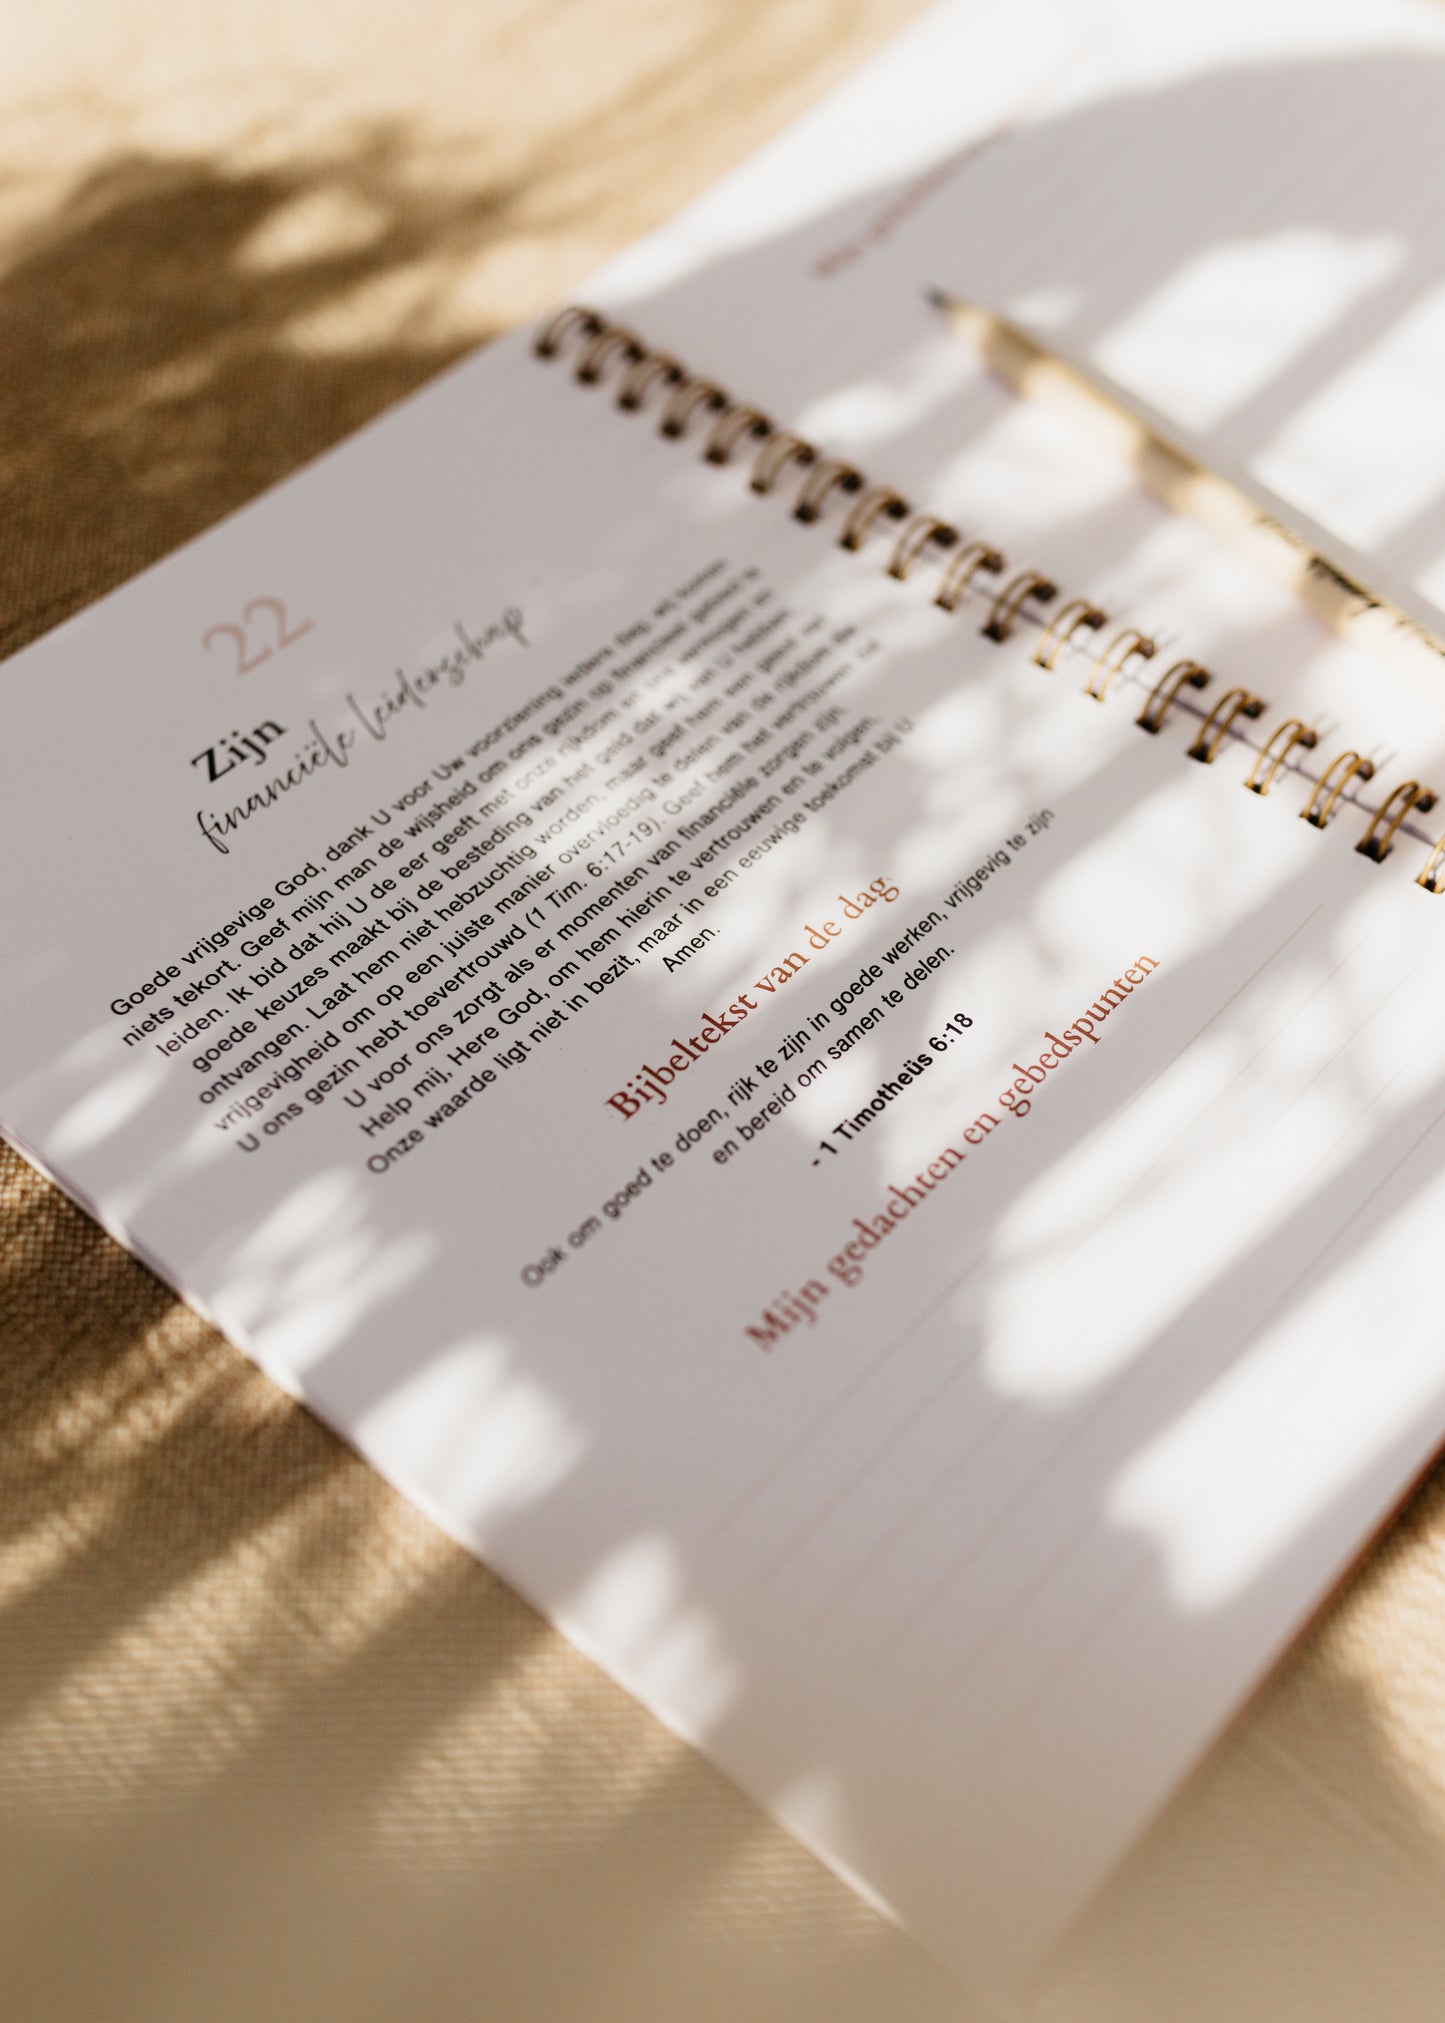 22
Zijn
financiële leiderschap
Goede vrijgevige God, dank U voor Uw voorziening iedere dag, wij komen
niets tekort. Geef mijn man de wijsheid om ons gezin op financieel gebied te
leiden. Ik bid dat hij U de eer geeft met onze rijkdom en ons vermogen en
goede keuzes maakt bij de besteding van het geld dat wij van U hebben
ontvangen. Laat hem niet hebzuchtig worden, maar geef hem een geest van
vrijgevigheid om op een juiste manier overvloedig te delen van de rijkdom die
U ons gezin hebt toevertrouwd (1 Tim. 6:17-19). Geef hem het vertrouwen dat
U voor ons zorgt als er momenten van financiële zorgen zijn.
Help mij, Here God, om hem hierin te vertrouwen en te volgen.
Onze waarde ligt niet in bezit, maar in een eeuwige toekomst bij U
Amen.
Bijbeltekst van de dag
Ook om goed te doen, rijk te zijn in goede werken, vrijgevig te zijn
en bereid om samen te delen.
- 1 Timotheüs 6:18
Mijn gedachten en gebedspunten